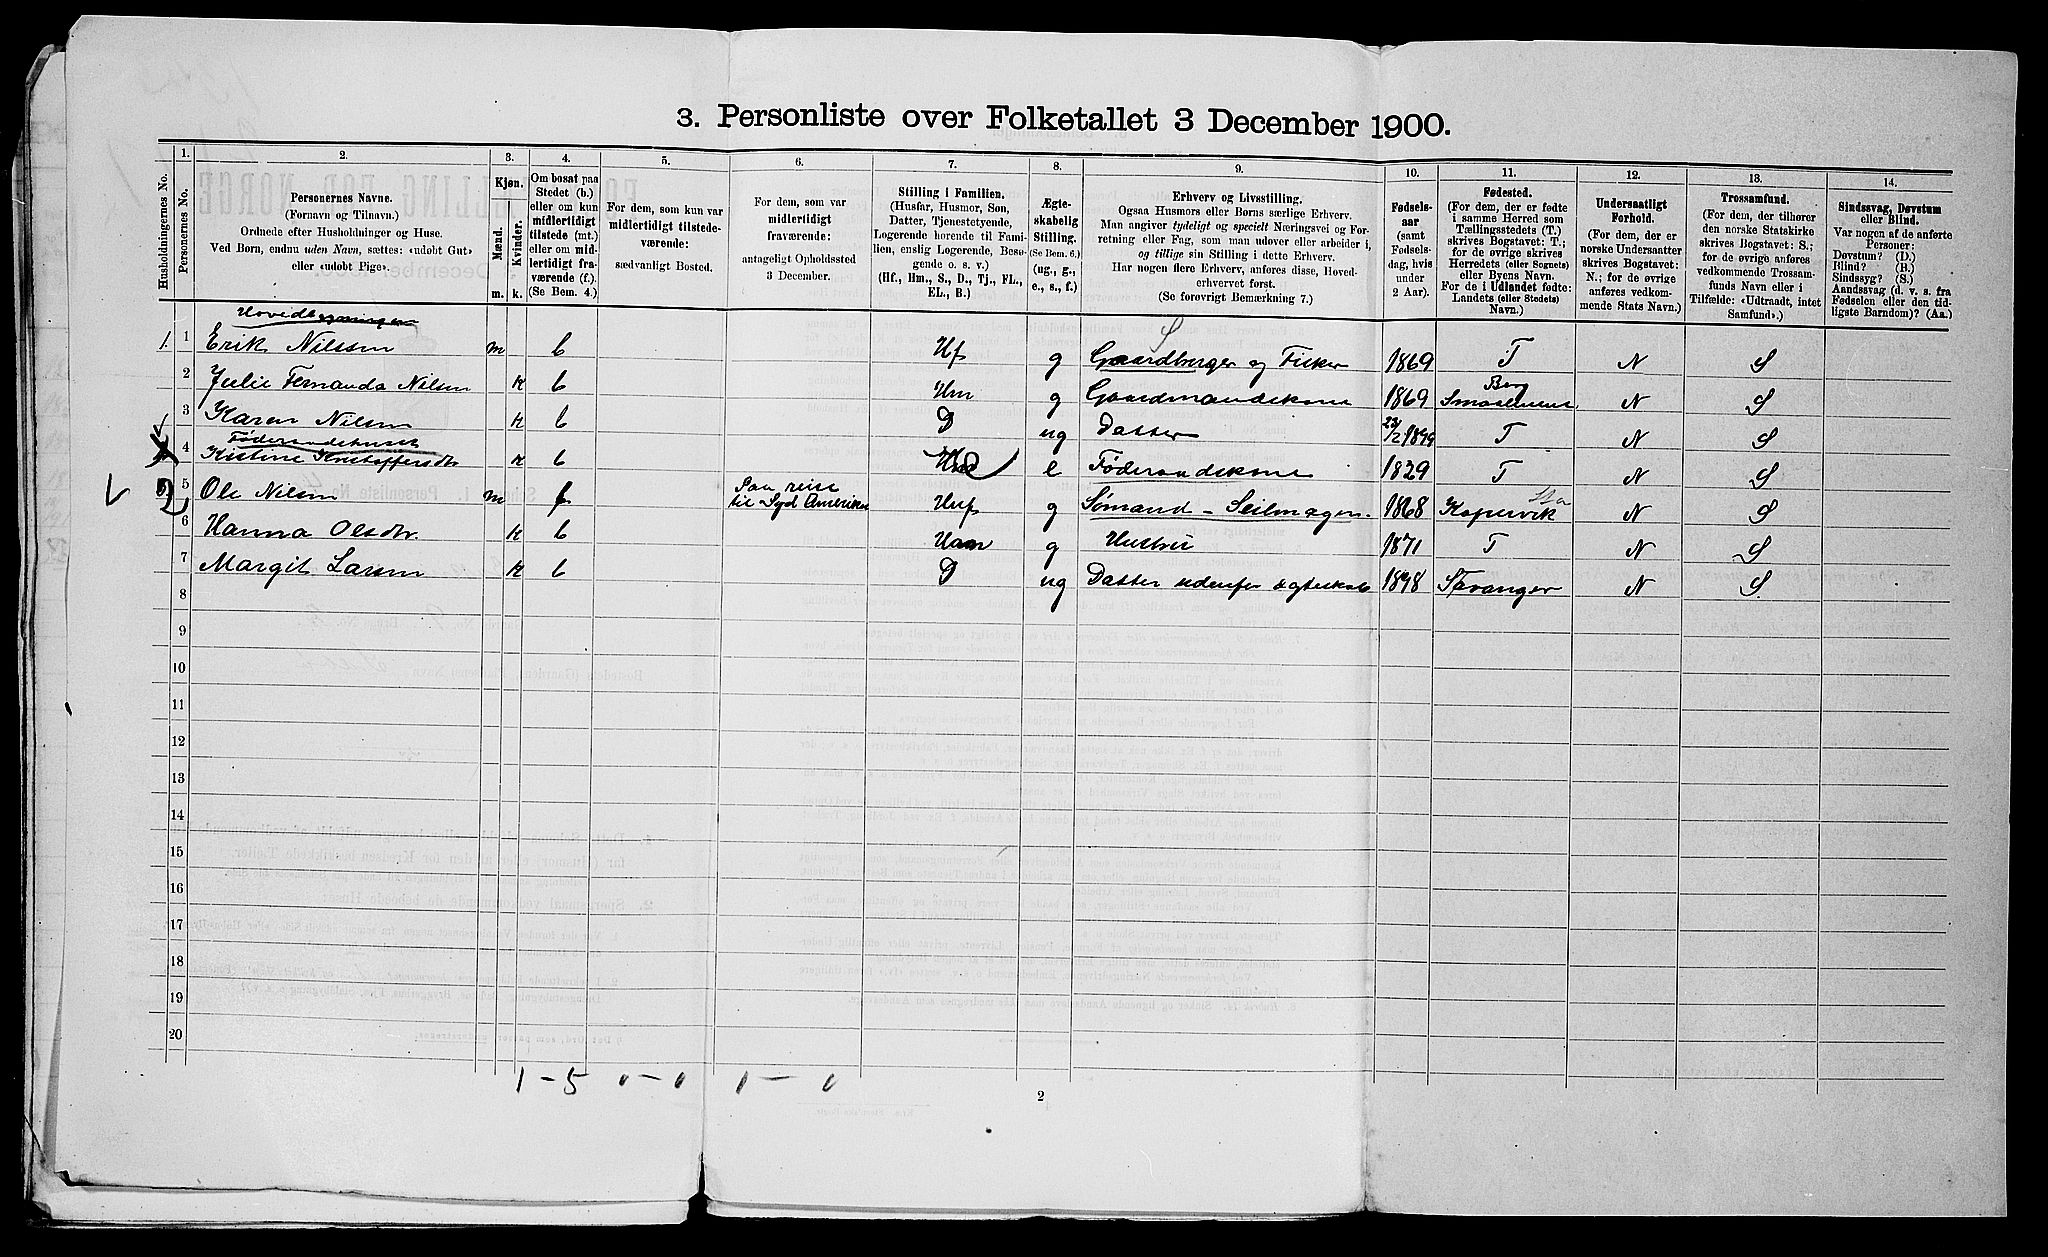 3. Personliste over Folketallet 3 December 1900.
Husholdningernes No.
1.
Personernes No.
2.
Personernes Navne.
(Fornavn og Tilnavn.)
Ordnede efter Husholdninger og Huse.
Ved Børn, endnu uden Navn, sættes: «udøbt Gut»
eller «udøbt Pige».
3.
Kjøn.
Mænd.
Kvinder.
m.
k.
4.
Om bosat paa
Stedet (b.)
eller om kun
midlertidigt
tilstede (mt.)
eller om mid-
lertidigt fra-
værende (f.)
(Se Bem. 4.)
5.
For dem, som kun var
midlertidigt tilstede-
værende:
sædvanligt Bosted.
6.
For dem, som var
midlertidigt
fraværende:
antageligt Opholdssted
3 December.
7.
Stilling i Familien.
(Husfar, Husmor, Søn,
Datter, Tjenestetyende,
Logerende hørende til Fami-
lien, enslig Logerende, Besø-
gende o. s. v.)
(Hf., Hm., S., D., Tj., FL.,
EL., B.)
8.
Ægte-
skabelig
Stilling.
(Se Bem. 6.)
(ug., g.,
e., s., f.)
9.
Erhverv og Livsstilling.
Ogsaa Husmors eller Børns særlige Erhverv.
Man angiver tydeligt og specielt Næringsvei og For-
retning eller Fag, som man udøver eller arbeider i,
og tillige sin Stilling i dette Erhverv.
Har nogen flere Erhverv, anføres disse, Hoved-
erhvervet først.
(Se forøvrigt Bemærkning 7.)
10.
Fødsels-
aar
(samt
Fødsels-
dag, hvis
under
2 Aar).
11.
Fødested.
(For dem, der er fødte
i samme Herred som
Tællingsstedets (T.)
skrives Bogstavet: T.;
for de øvrige skrives
Herredets (eller Sognets)
eller Byens Navn.
For de i Udlandet fødte:
Landets (eller Stedets)
Navn.)
12.
Undersaatligt
Forhold.
(For dem, der er
norske Undersaatter
skrives Bogstavet:
N.; for de øvrige
anføres vedkom-
mende Stats Navn.)
13.
Trossamfund.
(For dem, der tilhører
den norske Statskirke
skrives Bogstavet: S.;
for de øvrige anføres
vedkommende Trossam-
funds Navn eller i
Tilfælde: «Udtraadt, intet
Samfund».)
14.
Sindssvag, Døvstum
eller Blind.
Var nogen af de anførte
Personer:
Døvstum? (D.)
Blind? (B.)
Sindssyg? (S.)
Aandssvag (d. v. s. fra
Fødselen eller den tid-
ligste Barndom)? (Aa.)
Hovedbygningen
S
1. 1 Erik Nilssen m b Hf g Gaardbruger og Fisker 1869 T N S
2 Julie Fernanda Nilsen k b Hm g Gaardmandskone 1869 Berg Smaalenene N S
3 Karen Nilsen k b D ug Datter 22/2 1899 T N S
Føderaadshuset
4 Kistine Kristoffersdtr k b e Føderaadskone 1829 T N S
2, 5 Ole Nilsen m f Paa reise til Syd Amerika Huf g Sømand - Seilmager. 1868 Kopervik Sta N S
6 Hanna Olsdtr. k b Hum g Hustru 1871 T N S
7 Margit Larsen k b D ug Datter udenfor ægteskab 1898 Stavanger N S
8
9
10
11
12
13
14
15
16
17
18
19
20
1 – 5 0 – 0 1 – 0
2